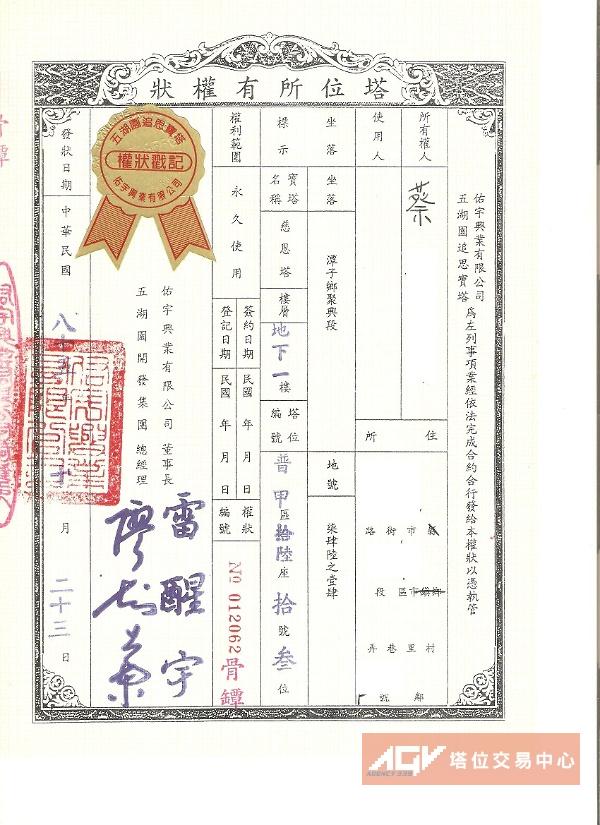 塔位所有權狀
佑宇興業有限公司
五湖園追思寶塔
為左列事項業經依法完成合約合行發給本權狀以憑執管
所有權人
使用人
蔡
住所
縣市街路
鄉鎮市區段
村里巷弄
鄰號
坐落
標示
坐落
潭子鄉聚興段
地號
柒肆陸之壹肆
寶塔名稱
慈恩塔
樓層
地下一樓
塔位編號
普甲區拾陸座拾號叁位
權利範圍
永久使用
簽約日期
民國 年 月 日
登記日期
民國 年 月 日
權狀編號
No 012062
骨罈
五湖園追思寶塔
權狀戳記
佑宇興業有限公司
佑宇興業有限公司 董事長
雷醒宇
五湖園開發集團 總經理
發狀日期
中華民國
八
月
二十三
日
骨罈
AGV
AGENCY 339
塔位交易中心